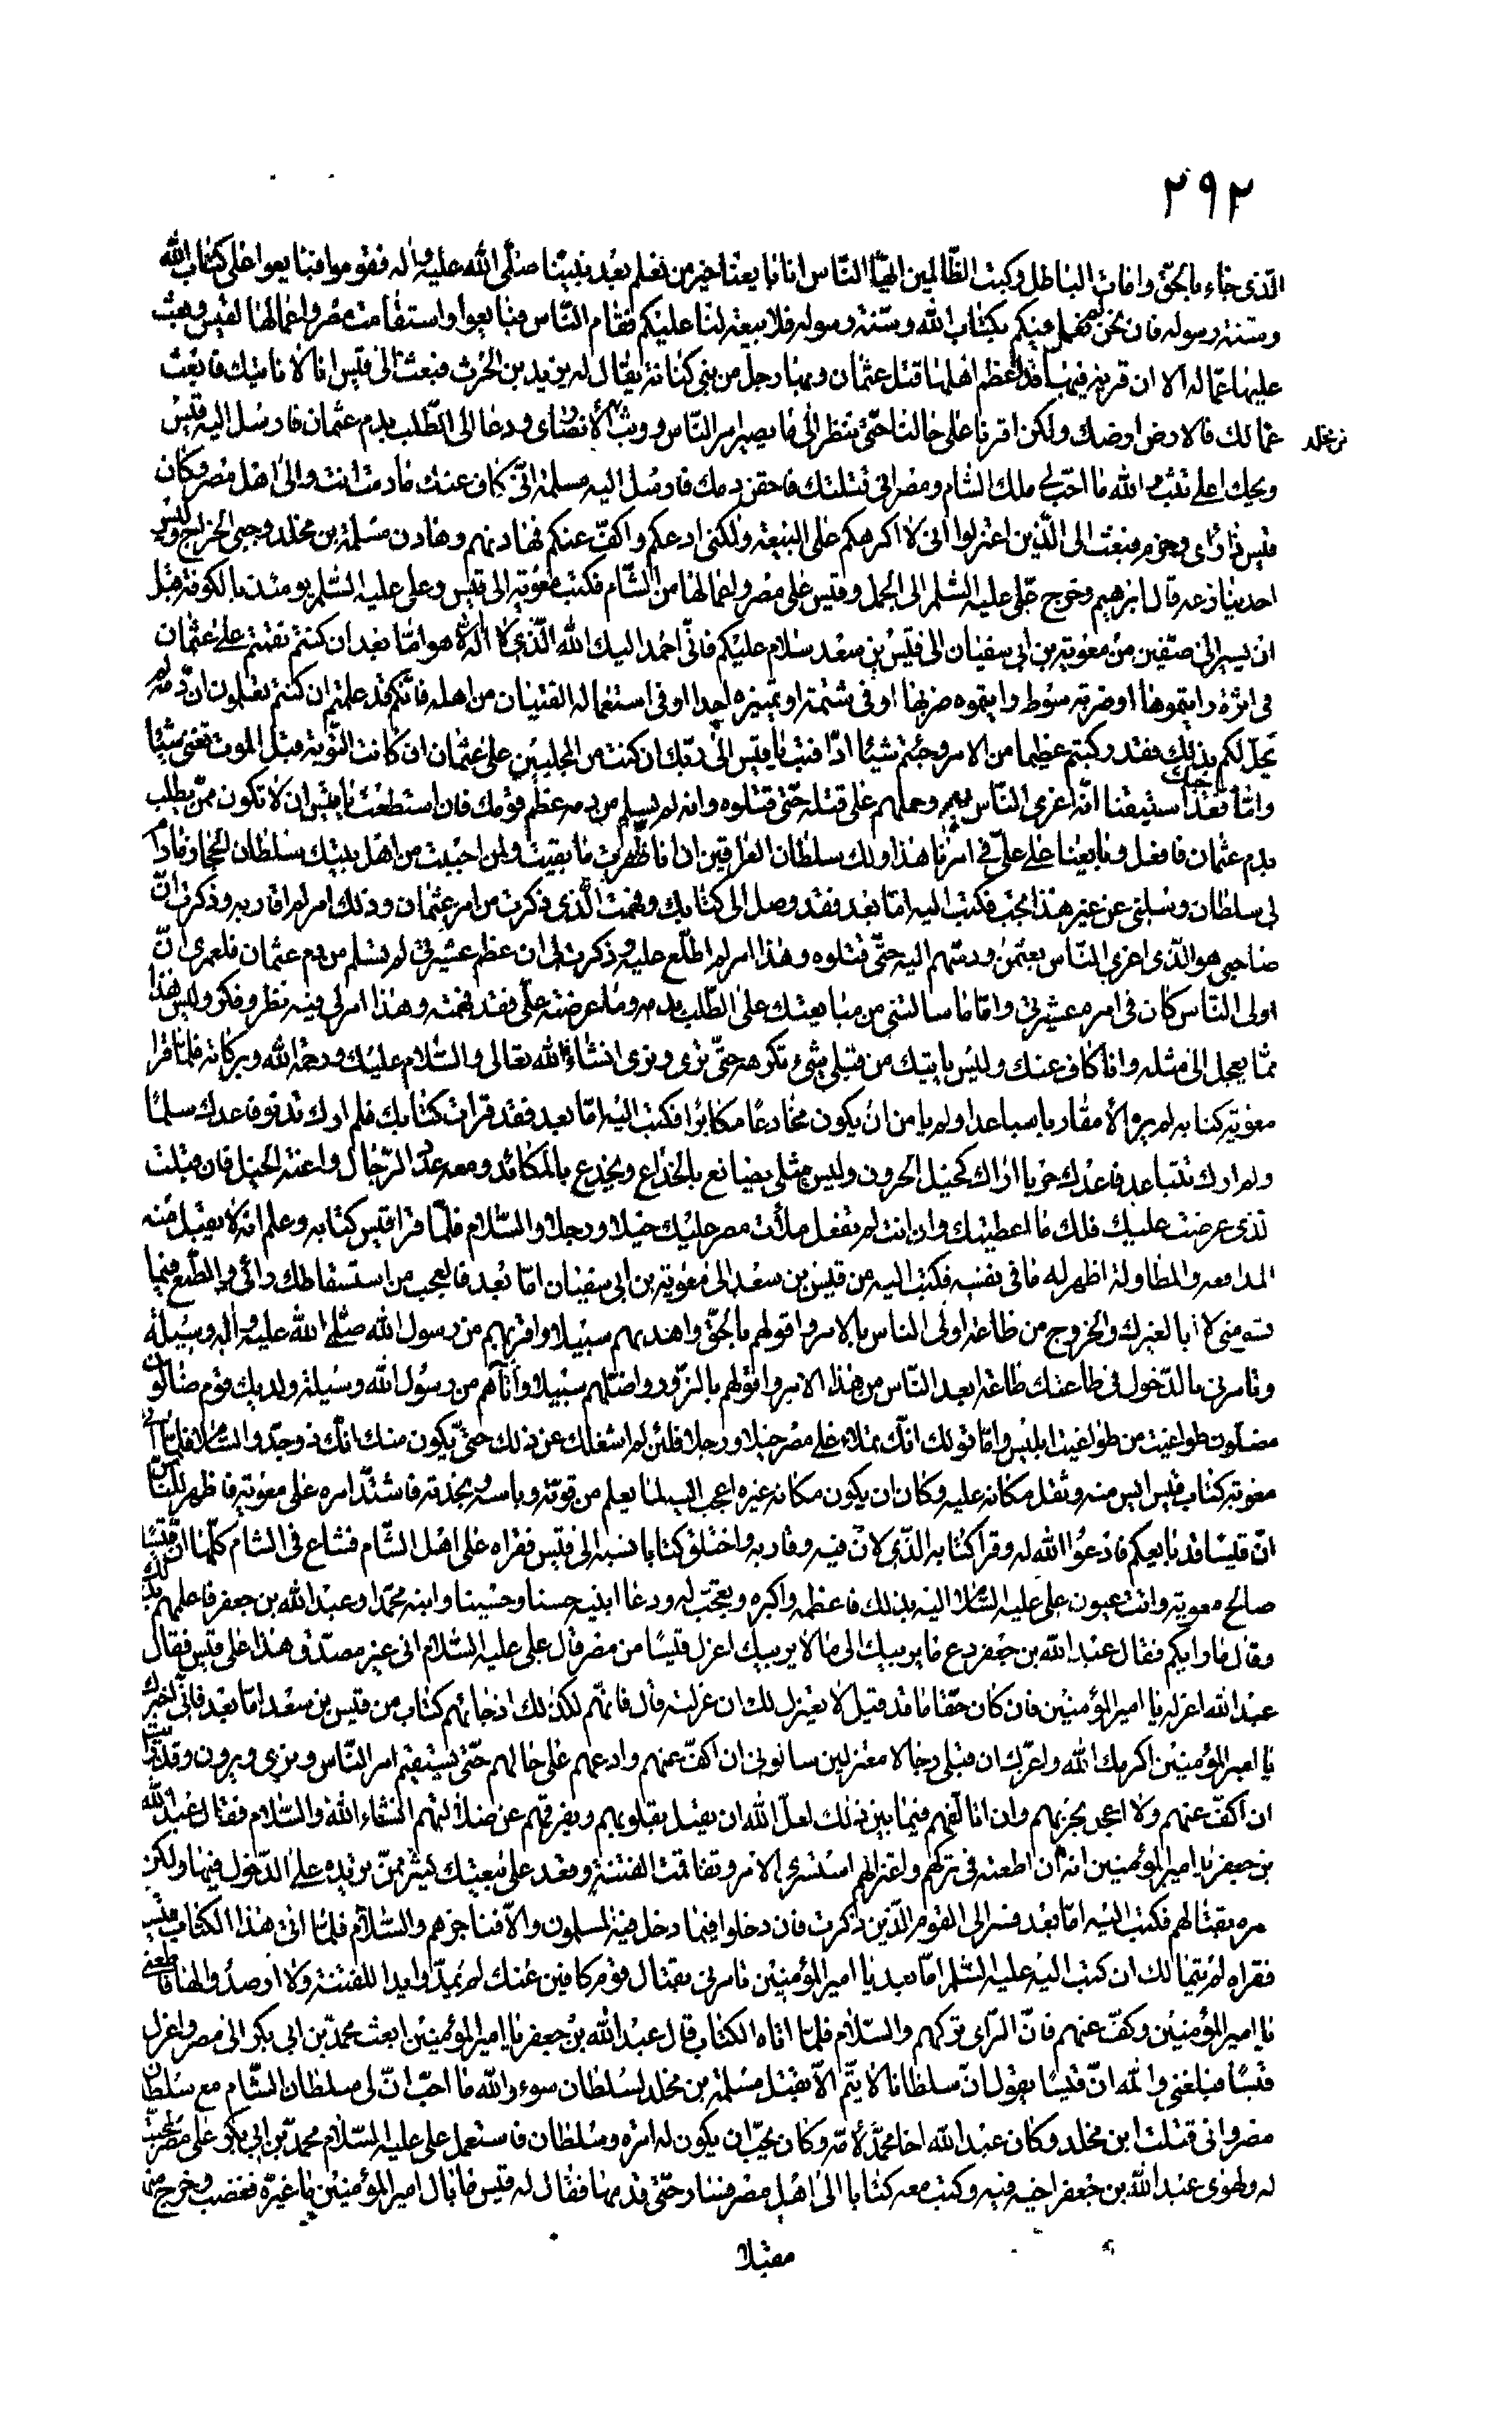 ٢٩٢
الّذى جاء بالحقّ وامات الباطل وكبت الظّالمين ايّها النّاس انا بايعنا خير من نعلم بعد نبيّنا صلّى الله عليه وآله فقوموا فبايعوا على كتاب الله
وسنّة رسوله فان نحن لم نعمل فيكم بكتاب الله وسنّة رسوله فلا بيعة لنا عليكم فقام النّاس فبايعوا واستقامت مصر واعمالها لقيس وبعث
عليها عمّاله الا ان قرية فيها قد اعظم اهلها قتل عثمان وبها رجل من بنى كنانة يقال له يزيد بن الحرث فبعث الى قيس انا لا ناتيك فابعث
عمالك فالارض ارضك ولكن اقرنا على حالنا حتّى ننظر الى ما يصير امر النّاس ووثب الأنصارى ودعا الى الطّلب بدم عثمان فارسل اليه قيس
بن مخلد
ويحك اعلى تثب والله ما احبّ لى ملك الشام ومصر انى قتلتك فاحقن دمك فارسل اليه مسلمة انّى كاف عنك ما دمت انت والى اهل مصر وكان
قيس ذا رأى وحزم فبعث الى الّذين اعتزلوا انى لا اكرهكم على البيعة ولكنى ادعكم واكفّ عنكم فهادنهم وهادن مسلمة بن مخلد وجبى الخراج وليس
احد ينازعه قال ابرهيم وخرج علّى عليه السّلم الى الجمل وقيس على مصر واعمالها من الشّام فكتب معوية الى قيس وعلى عليه السّلم يومئذ بالكوفة قبل
ان يسير الى صفّين من معوية بن ابى سفيان الى قيس بن سعد سلام عليكم فانّى احمد اليك الله الّذى لا اله الا هو امّا بعد ان كنتم نقمتم على عثمان
فى اثرة رايتموها او ضربة سوط رايتموه ضربها او فى شتمة او تمييزه احدا او فى استعماله الفتيان من اهله فانّكم قد علمتم ان كنتم تعلمون انّ دمه لم
يحلّ لكم بذلك فقد ركبتم عظيما من الامر وجئتم شيئا ادّا فتب يا قيس الى ربّك ان كنت من المجلبين على عثمان ان كانت التّوبة قبل الموت تغنى شيئا
وامّا صاحبك فقد استيقنا انّه اغرى النّاس به وحملهم على قتله حتّى قتلوه وانه لم يسلم من دمه عظم قومك فان استطعت يا قيس ان لا تكون ممّن يطلب
بدم عثمان فافعل وبايعنا على علىّ فى امرنا هذا ولك سلطان العراقين ان انا ظهرت ما بقيت ولمن احببت من اهل بيتك سلطان الحجاز ما دام
لى سلطان وسلنى عن غير هذا مما تحبّ فكتب اليه امّا بعد فقد وصل الى كتابك وفهمت الّذى ذكرت من امر عثمان وذلك امر لم اقاربه وذكرت انّ
صاحبى هو الّذى اغرى النّاس بعثمن ودسّهم اليه حتّى قتلوه وهذا امر لم اطّلع عليه وذكرت لى ان عظم عشيرتى لم تسلم من دم عثمان فلعمرى انّ
اولى النّاس كان فى امره عشيرتى وامّا ما سالتنى من مبايعتك على الطّلب بدمه وما عرضته علىّ فقد فهمته وهذا امر لى فيه نظر وفكر وليس هذا
ممّا يعجل الى مثله وانا كاف عنك وليس ياتيك من قبلى شىء تكرهه حتّى ترى ونرى انشاء الله تعالى والسّلام عليك ورحمة الله وبركاته فلمّا قرا
معوية كتابه لم يره الأ مقاربا مباعدا ولم يامن ان يكون مخادعًا مكابرًا فكتب اليه امّا بعد فقد قرات كتابك فلم ارك تدنو فاعدك سلمًا
ولم ارك تتباعد فاعدك حربا اراك كحبل الحرون وليس مثلى يصانع بالخداع ويخدع بالمكائد ومعه عدد الرّجال واعنة الخيل فان قبلت
الذى عرضت عليك فلك ما اعطيتك وان انت لم تفعل ملأت مصر عليك خيلا ورجلا والسّلام فلمّا قرا قيس كتابه وعلم انه لا يقبل منه
المدافعه والمطاولة اظهر له ما فى نفسه فكتب اليه من قيس بن سعد الى معوية بن ابى سفيان امّا بعد فالعجب من استسقاطك رائى والطّمع فيما
تسومنى لا ابا لغيرك والخروج من طاعة اولى الناس بالامر واقولهم بالحقّ واهديهم سبيلا واقربهم من رسول الله صلّى الله عليه وآله وسيلة
وتامرنى بالدّخول فى طاعتك طاعة ابعد النّاس من هذا الامر واقولهم بالزّور واضلّهم سبيلا وأنآهم من رسول الله وسيلة ولديك قوم ضالّون
مضلّون طواغيت من طواغيت ابليس وامّا قولك انّك تملاء على مصر خيلا ورجلا فلئن لم اشغلك عن ذلك حتى يكون منك انّك ذو جدّ والسّلام فلمّا اتى
معوية كتاب قيس ايس منه وثقل مكانه عليه وكان ان يكون مكانه غيره اعجب اليه لما يعلم من قوّته وباسه ونجدته فاشتدّ امره على معوية فاظهر للنّاس
انّ قيسًا قد بايعكم فادعوا الله له وقرا كتابه الّذى لان فيه وقاربه واختلق كتابا نسبه الى قيس فقراه على اهل الشّام فشاع فى الشام كلّها انّ قيسًا
صالح معوية واتت عيون على عليه السّلام اليه بذلك فاعظمه واكبره وتعجّب له ودعا ابنيه حسنا وحسينا وابنه محمّدا وعبد الله بن جعفر فاعلمهم بذلك
وقال ما رايكم فقال عبد الله بن جعفر دع ما يريبك الى ما لا يريبك اعزل قيسًا من مصر قال على عليه السّلام انى غير مصدّق هذا على قيس فقال
عبد الله اعزله يا امير المؤمنين فان كان حقّا ما قد قيل لا يعتزل لك ان عزلته قال فانّهم لكذلك اذ جائهم كتاب من قيس بن سعد امّا بعد فانّى اخبرك
يا امير المؤمنين اكرمك الله واعزّك ان قبلى رجالا معتزلين سالونى ان اكفّ عنهم وادعهم على حالهم حتّى يستقيم امر النّاس ونرى ويرون وقد رايت
ان اكفّ عنهم ولا اعجل بحربهم وان اتالّفهم فيما بين ذلك لعلّ الله ان يقبل بقلوبهم ويفرّقهم عن ضلالتهم انشاء الله والسّلام فقال عبد الله
بن جعفر يا امير المؤمنين انه ان اطعته فى تركهم واعتزالهم استشرى الامر وتفاقمت الفتنة وقعد على بيعتك كثير ممّن تريده على الدّخول فيها ولكن
مره بقتالهم فكتب اليه امّا بعد فسر الى القوم الّذين ذكرت فان دخلوا فيما دخل فيه المسلمون والّا فناجزهم والسّلام فلمّا اتى هذا الكتاب قيسا
فقراه لم يتمالك ان كتب اليه عليه السّلم امّا بعد يا امير المؤمنين تامرنى بقتال قوم كافين عنك لم يمدّوا يدا للفتنة ولا ارصدوا لها فاطعنى
يا امير المؤمنين وكفّ عنهم فانّ الرّاى تركهم والسّلام فلمّا اتاه الكتاب قال عبد الله بن جعفر يا امير المؤمنين ابعث محمّد بن ابى بكر الى مصر واعزل
قيسًا فبلغنى والله انّ قيسًا يقول انّ سلطانا لا يتّم الّا بقتل مسلمة بن مخلد لسلطان سوء والله ما احبّ انّ لى سلطان الشّام مع سلطان
مصر وانى قتلت ابن مخلد وكان عبد الله اخا محمّد لأمّه وكان يحبّ ان يكون له امرة وسلطان فاستعمل على عليه السّلام محمّد بن ابى بكر على مصر لمحبّته
له ولهوى عبد الله بن جعفر اخيه فيه وكتب معه كتابا الى اهل مصر فسار حتّى قدمها فقال له قيس ما بال امير المؤمنين ما غيّره فغضب وخرج منها
مقبلا